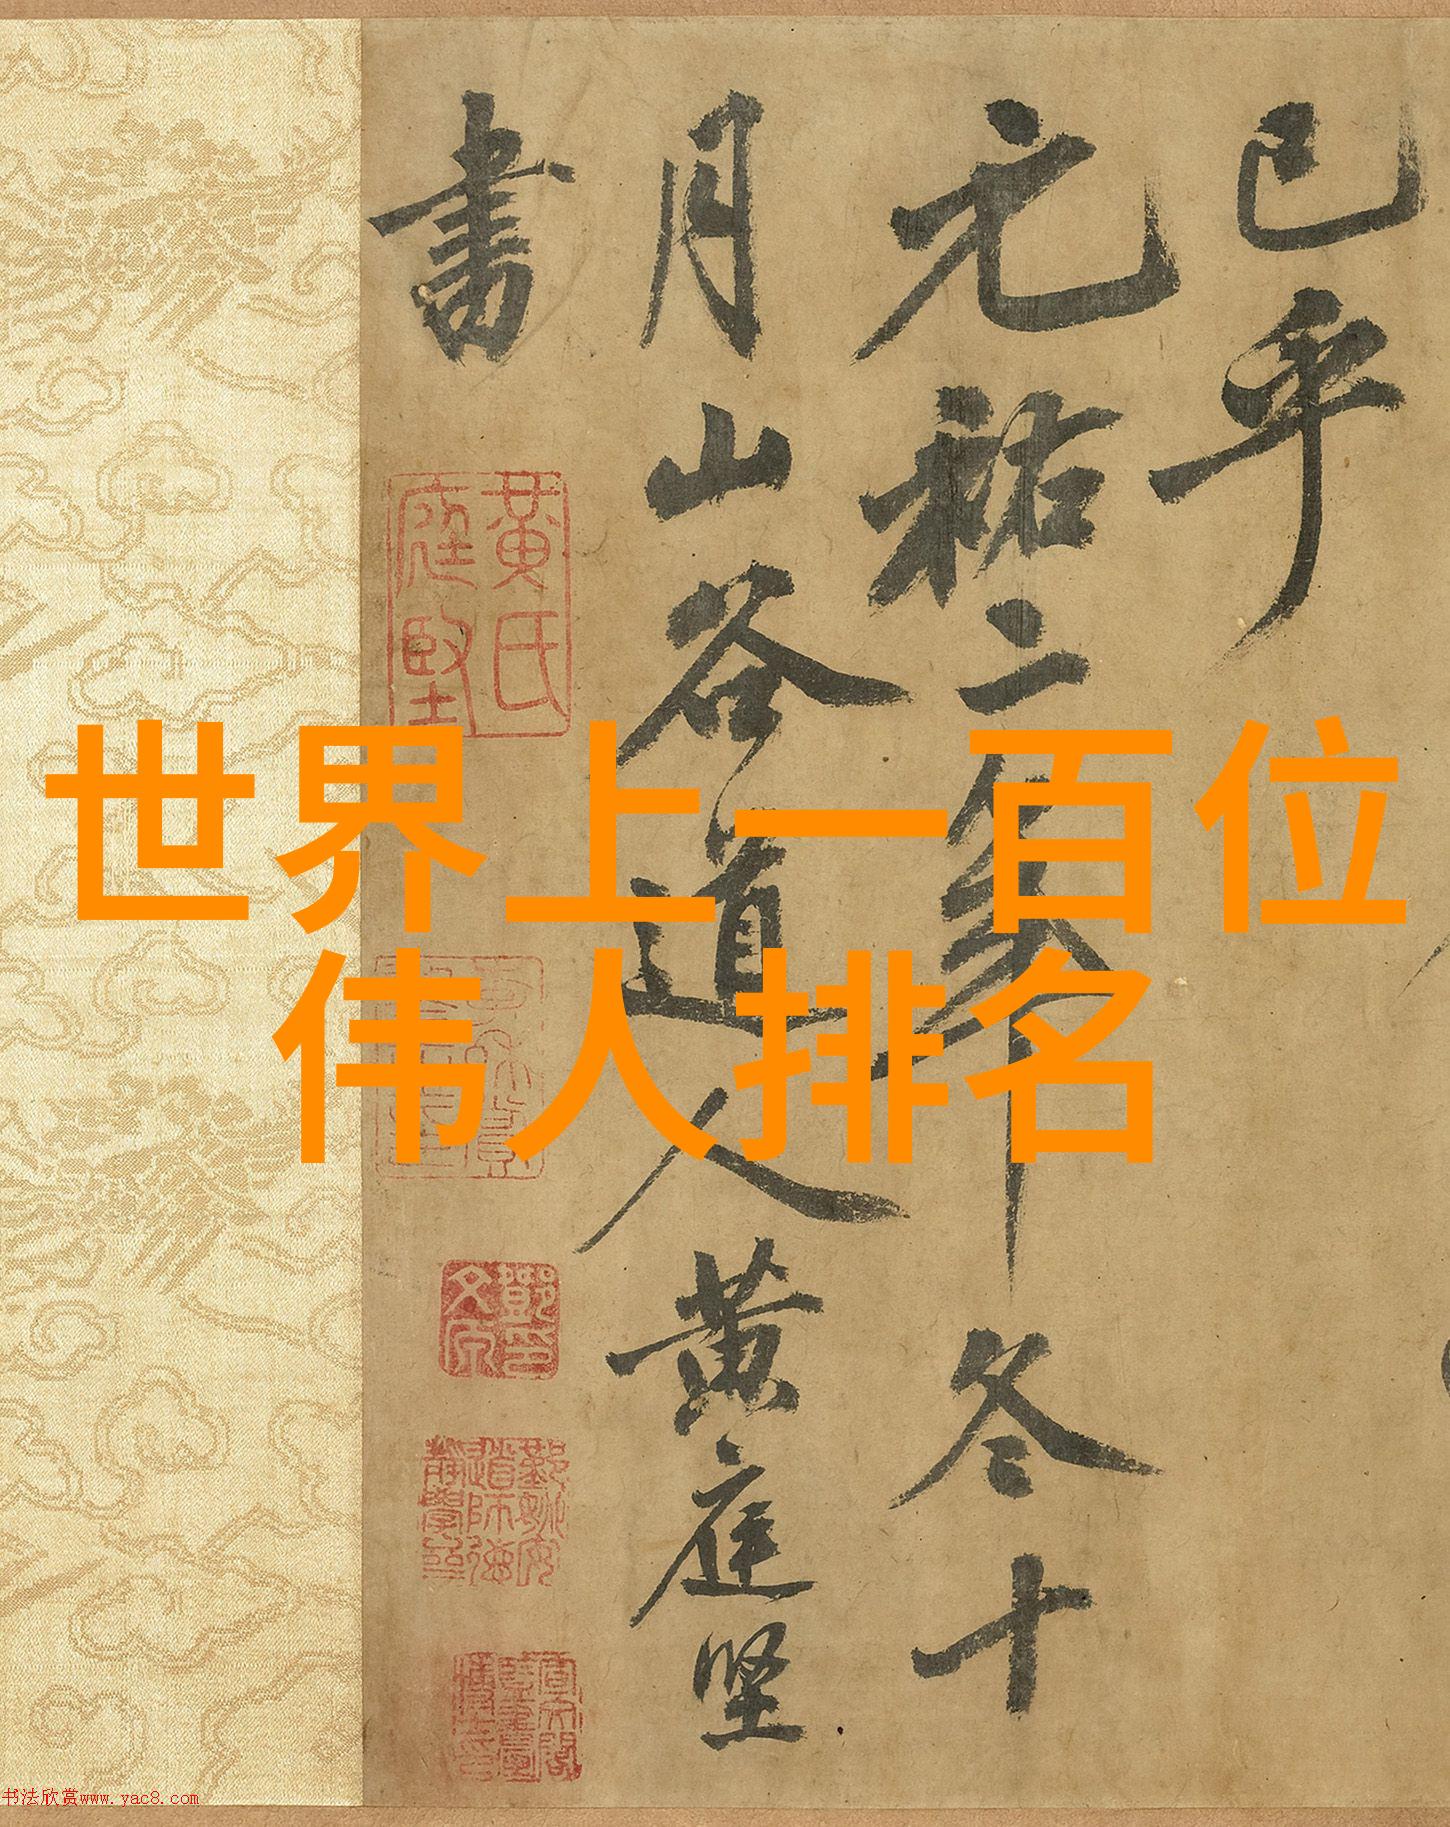 世界上一百位
伟人排名
已乎
元祐二年冬十
月山谷道人黄庭坚
書
黄氏
庭堅
书法欣赏www.yac8.com